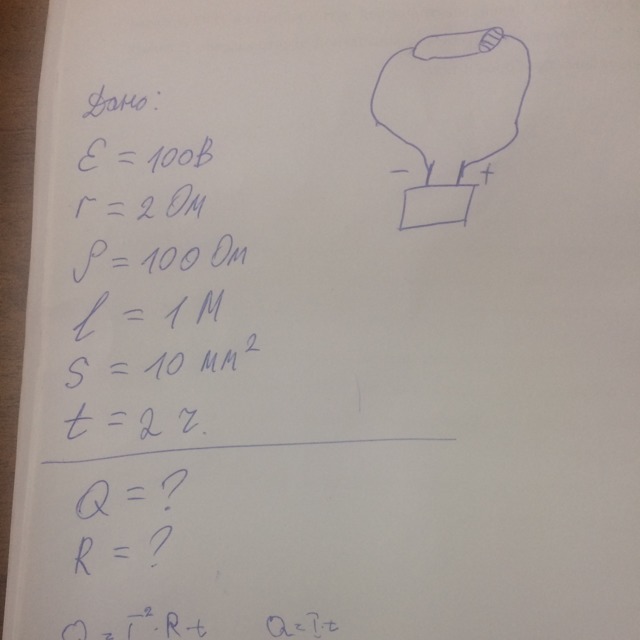 Дано:
- +
ε = 100В
r = 2 Ом
ρ = 100 Ом
l = 1 М
S = 10 мм²
t = 2 ч.
Q = ?
R = ?
Q = I²·Rt Q = I·t